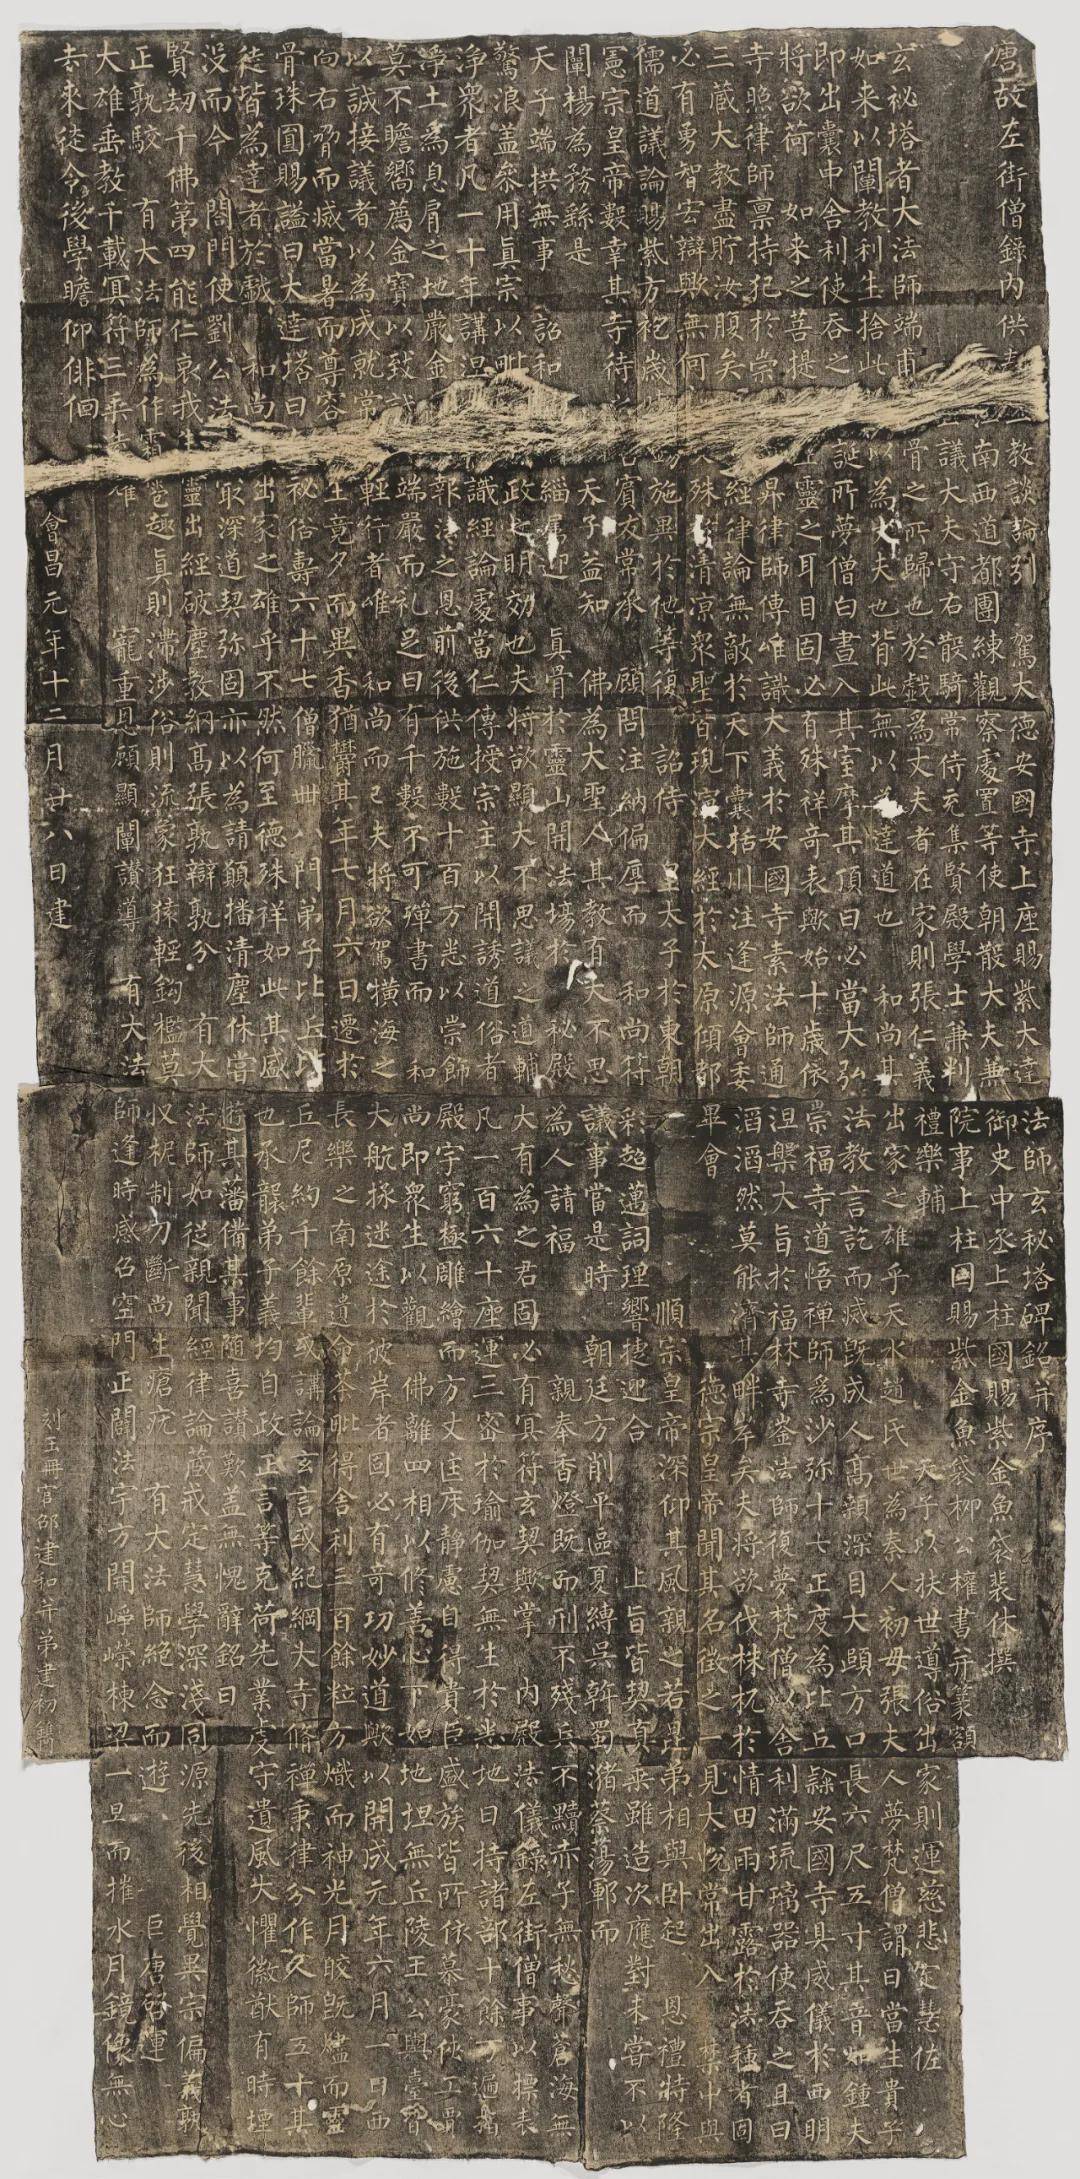 唐故左街僧錄內供教談論引 駕大德安國寺上座賜紫大達法師玄秘塔碑銘并序
江南西道都團練觀察處置等使朝散大夫兼御史中丞上柱國賜紫金魚袋裴休撰
議大夫守右散騎常侍充集賢殿學士兼判院事上柱國賜紫金魚袋柳公權書并篆額
玄秘塔者大法師端甫骨之所歸也於戲為丈夫者在家則張仁義禮樂輔 天子以扶世導俗出家則運慈悲定慧佐
如来以闡教利生捨此以為丈夫也背此無以為達道也 和尚其出家之雄乎天水趙氏世為秦人初母張夫人夢梵僧謂曰當生貴子
即出囊中舍利使吞之誕所夢僧白晝入其室摩其頂曰必當大弘法教言訖而滅既成人高顙深目大頤方口長六尺五寸其音如鍾夫
將欲荷 如来之菩提靈之耳目固必有殊祥奇表歟始十歲依崇福寺道悟禪師為沙弥十七正度為比丘隸安國寺具威儀於西明
寺照律師禀持犯於崇昇律師傳唯識大義於安國寺素法師通涅槃大旨於福林寺崟法師復夢梵僧以舍利滿琉璃器使吞之且曰
三藏大教盡貯汝腹矣經律論無敵於天下囊括川注逢源會委滔滔然莫能濟其畔岸矣夫將欲伐株杌於情田雨甘露於法種者固
必有勇智宏辯歟無何殊清凉衆聖皆現演大經於太原傾都畢會 德宗皇帝聞其名徵之一見大悅常出入 禁中與
儒道議論賜紫方袍歲施異於他等復 詔侍 皇太子於東朝 順宗皇帝深仰其風親之若昆弟相與卧起 恩禮特隆
憲宗皇帝數幸其寺待賓友常承 顧問注納偏厚而 和尚符彩超邁詞理響捷迎合 上旨皆契真乘雖造次應對未嘗不以
闡揚為務繇是 天子益知 佛為大聖人其教有大不思議事當是時 朝廷方削平區夏縛吳斡蜀瀦蔡蕩鄆而
天子端拱無事 詔和緇屬迎 真骨於靈山開法塲於秘殿為人請福 親奉香燈既而刑不殘兵不黷赤子無愁聲蒼海無
驚浪盖叅用真宗以毗政之明效也夫將欲顯大不思議之道輔大有為之君固必有冥符玄契歟掌 內殿法儀錄左街僧事以摽表
淨衆者凡一十年講涅識經論處當仁傳授宗主以開誘道俗者凡一百六十座運三密於瑜伽契無生於悉地日持諸部十餘万遍指
淨土為息肩之地嚴金報法之恩前後供施數十百万悉以崇飾殿宇窮極雕繪而方丈匡床靜慮自得貴臣盛族皆所依慕豪俠工賈
莫不瞻嚮薦金寶以致誠端嚴而礼足日有千數不可殫書而 和尚即衆生以觀佛離四相以修善心下如地坦無丘陵王公輿臺皆
以誠接議者以為成就常輕行者唯和尚而已夫將欲駕橫海之大航拯迷途於彼岸者固必有奇功妙道歟以開成元年六月一日西
向右脅而滅當暑而尊容生竟夕而異香猶欝其年七月六日遷於長樂之南原遺命荼毗得舍利三百餘粒方熾而神光月皎既燼而靈
骨珠圓賜謚曰大達塔曰秘俗壽六十七僧臘卌八門弟子比丘比丘尼約千餘輩或講論玄言或紀綱大寺脩禪秉律分作人師五十其
徒皆為達者於戲 和尚出家之雄乎不然何至德殊祥如此其盛也承襲弟子義均自政正言等克荷先業虔守遺風大懼徽猷有時堙
没而今 閤門使劉公法取深道契弥固亦以為請願播清塵休嘗遊其藩備其事隨喜讚歎盖無愧辭銘曰
賢劫千佛第四能仁哀我生靈出經破塵教網高張孰辯孰分 有大法師如從親聞經律論藏戒定慧學深淺同源先後相覺異宗偏義孰
正孰駮 有大法師為作霜雹趣真則滯涉俗則流象狂猿輕鈎檻莫收柅制刀斷尚生瘡疣 有大法師絕念而遊 巨唐啓運
大雄垂教千載冥符三乘耀 寵重恩顧顯闡讚導 有大法師逢時感召空門正闢法宇方開崢嶸棟梁一旦而摧水月鏡像無心
去来徒令後學瞻仰俳佪
會昌元年十二月廿八日建
刻玉冊官邵建和并弟建初鐫